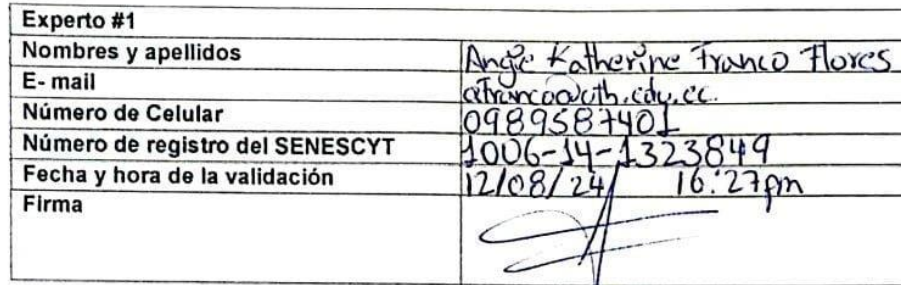 Experto #1
Nombres y apellidos Angie Katherine Franco Flores
E- mail
Número de Celular 0989587401
Número de registro del SENESCYT 1006-14-1323849
Fecha y hora de la validación 12/08/24 16:27pm
Firma